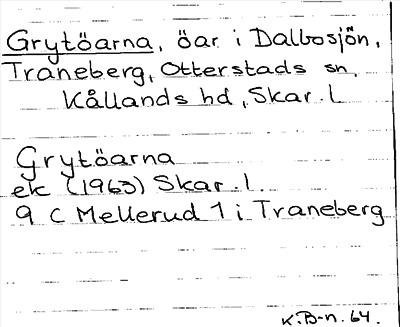 Grytöarna, öar i Dalbosjön,
Traneberg, Otterstads sn,
Kållands hd, Skar. l
Grytöarna
ek (1963) Skar. l.
9 C Mellerud 1 i Traneberg
K.B-n. 64.